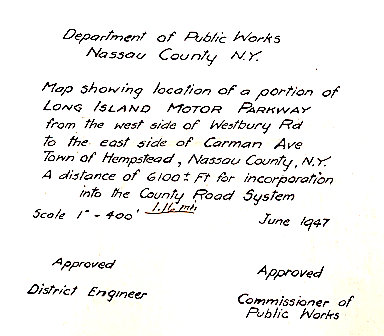 Department of Public Works
Nassau County N.Y.
Map showing location of a portion of
LONG ISLAND MOTOR PARKWAY
from the west side of Westbury Rd
to the east side of Carman Ave
Town of Hempstead, Nassau County, N.Y.
A distance of 6100± Ft for incorporation
into the County Road System
1.16 mi
Scale 1" - 400'
June 1947
Approved
District Engineer
Approved
Commissioner of
Public Works